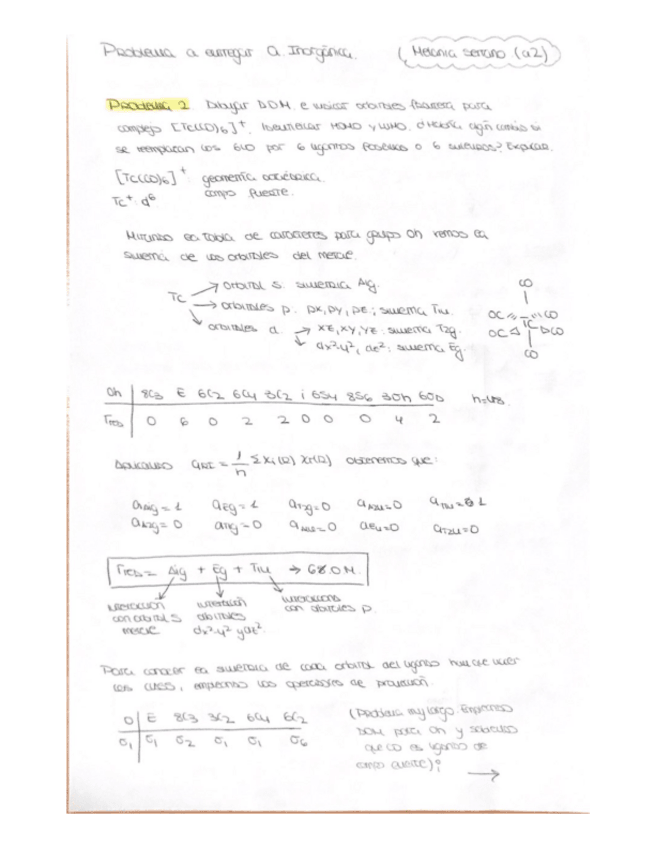 Problema a entregar Q. Inorgánica. (Melania Serrano (a2)
PROBLEMA 2 Dibujar D.O.M. e indicar orbitales frontera para
complejo [Tc(CO)6]+. Identificar HOMO y LUMO. ¿Habría algún cambio si
se reemplazan los 6CO por 6 ligantes fosfina o 6 ? Explicar.
[Tc(CO)6]+ geometría octaédrica.
Tc+: d6 campo fuerte.
Mirando la tabla de caracteres para grupo Oh vemos la
simetría de los orbitales del metal.
Tc → orbital s. simetría A1g.
→ orbitales p. px, py, pz; simetría T1u.
→ orbitales d. → xz, xy, yz: simetría T2g.
→ dx²-y², dz²; simetría Eg.
CO
OC CO
TC
OC CO
CO
Oh | 8C3 E 6C2 6C4 3C2 i 6S4 8S6 3σh 6σD h=48.
ΓTED | 0 6 0 2 2 0 0 0 4 2
Aplicando aRI = 1/h Σ Xi(R) Xr(R) obtenemos que:
aA1g = 1 aEg = 1 aT2g = 0 aA2u = 0 aT1u = 1
aA2g = 0 aT1g = 0 aA1u = 0 aEu = 0 aT2u = 0
ΓTED = A1g + Eg + T1u → 6 O.M.
interacción con orbital s metal
interacción orbitales dx²-y² y dz²
interacciona con orbitales p.
Para conocer la simetría de cada orbital del ligando hay que hacer
los CLAS, empleando los operadores de proyección.
O | E 8C3 3C2 6C4 6C2
σ1 | σ1 σ2 σ1 σ1 σ6
(Problema muy largo. Empleamos
DOM para Oh y sabiendo
que CO es ligando de
campo fuerte);
→